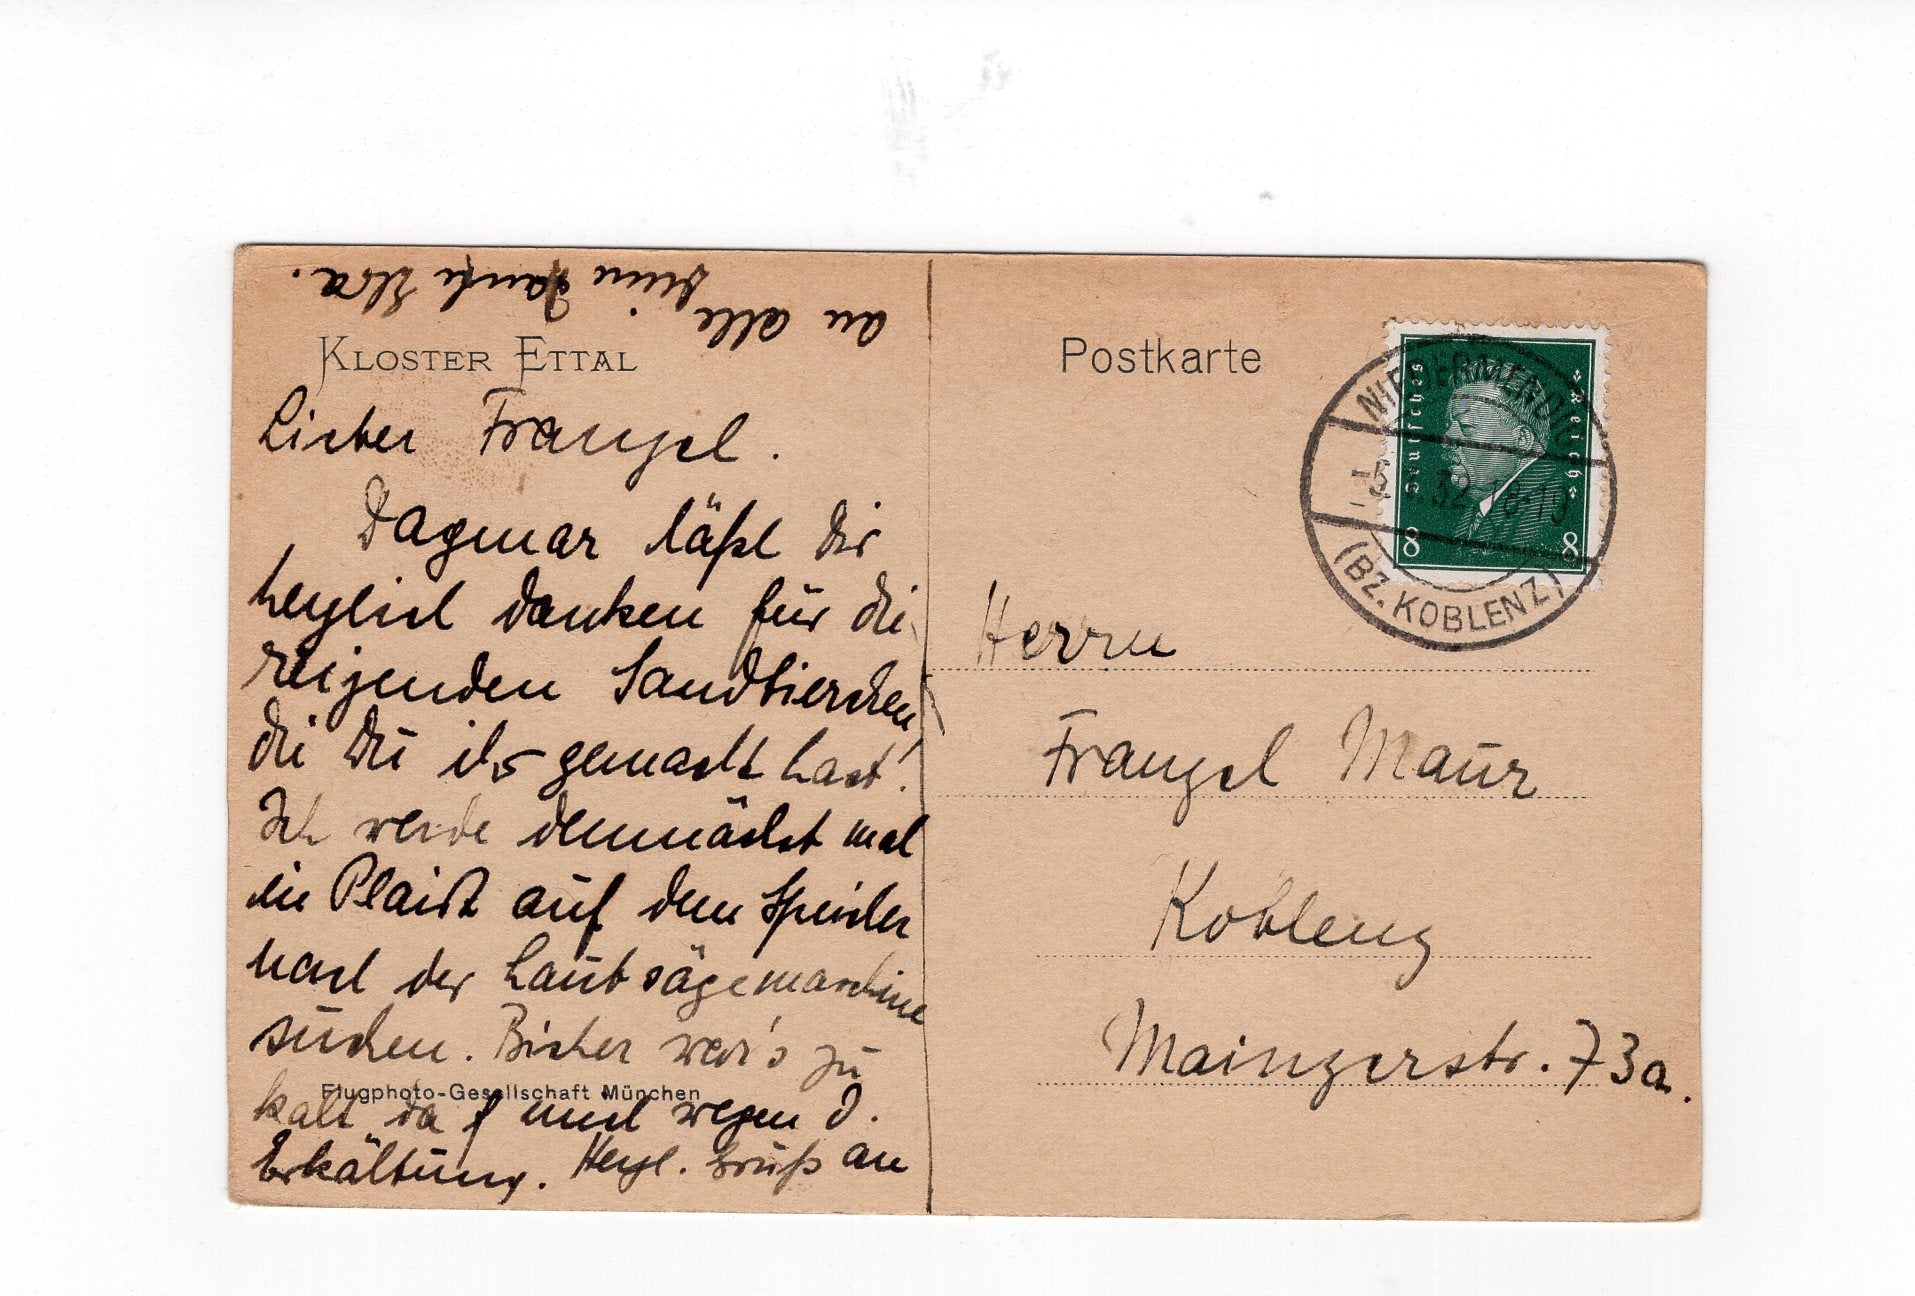 KLOSTER ETTAL
Lieber Franzel.
Dagmar läßt Dir
herzlich danken für die
reizenden Sandtierchen,
die Du ihr gemacht hast!
Ich werde demnächst mal
in Plaidt auf dem Speicher
nach der Laubsägemaschine
suchen. Bisher war's zu
kalt da f mich wegen d.
Erkältung. Herzl. Gruß an
an alle,
Deine Tante Elsa.
Flugphoto-Gesellschaft München
Postkarte
Deutsches Reich
8 8
NIEDERMENDIG
5. 32 18-19
(BZ. KOBLENZ)
Herrn
Franzel Maur
Koblenz
Mainzerstr. 73a.